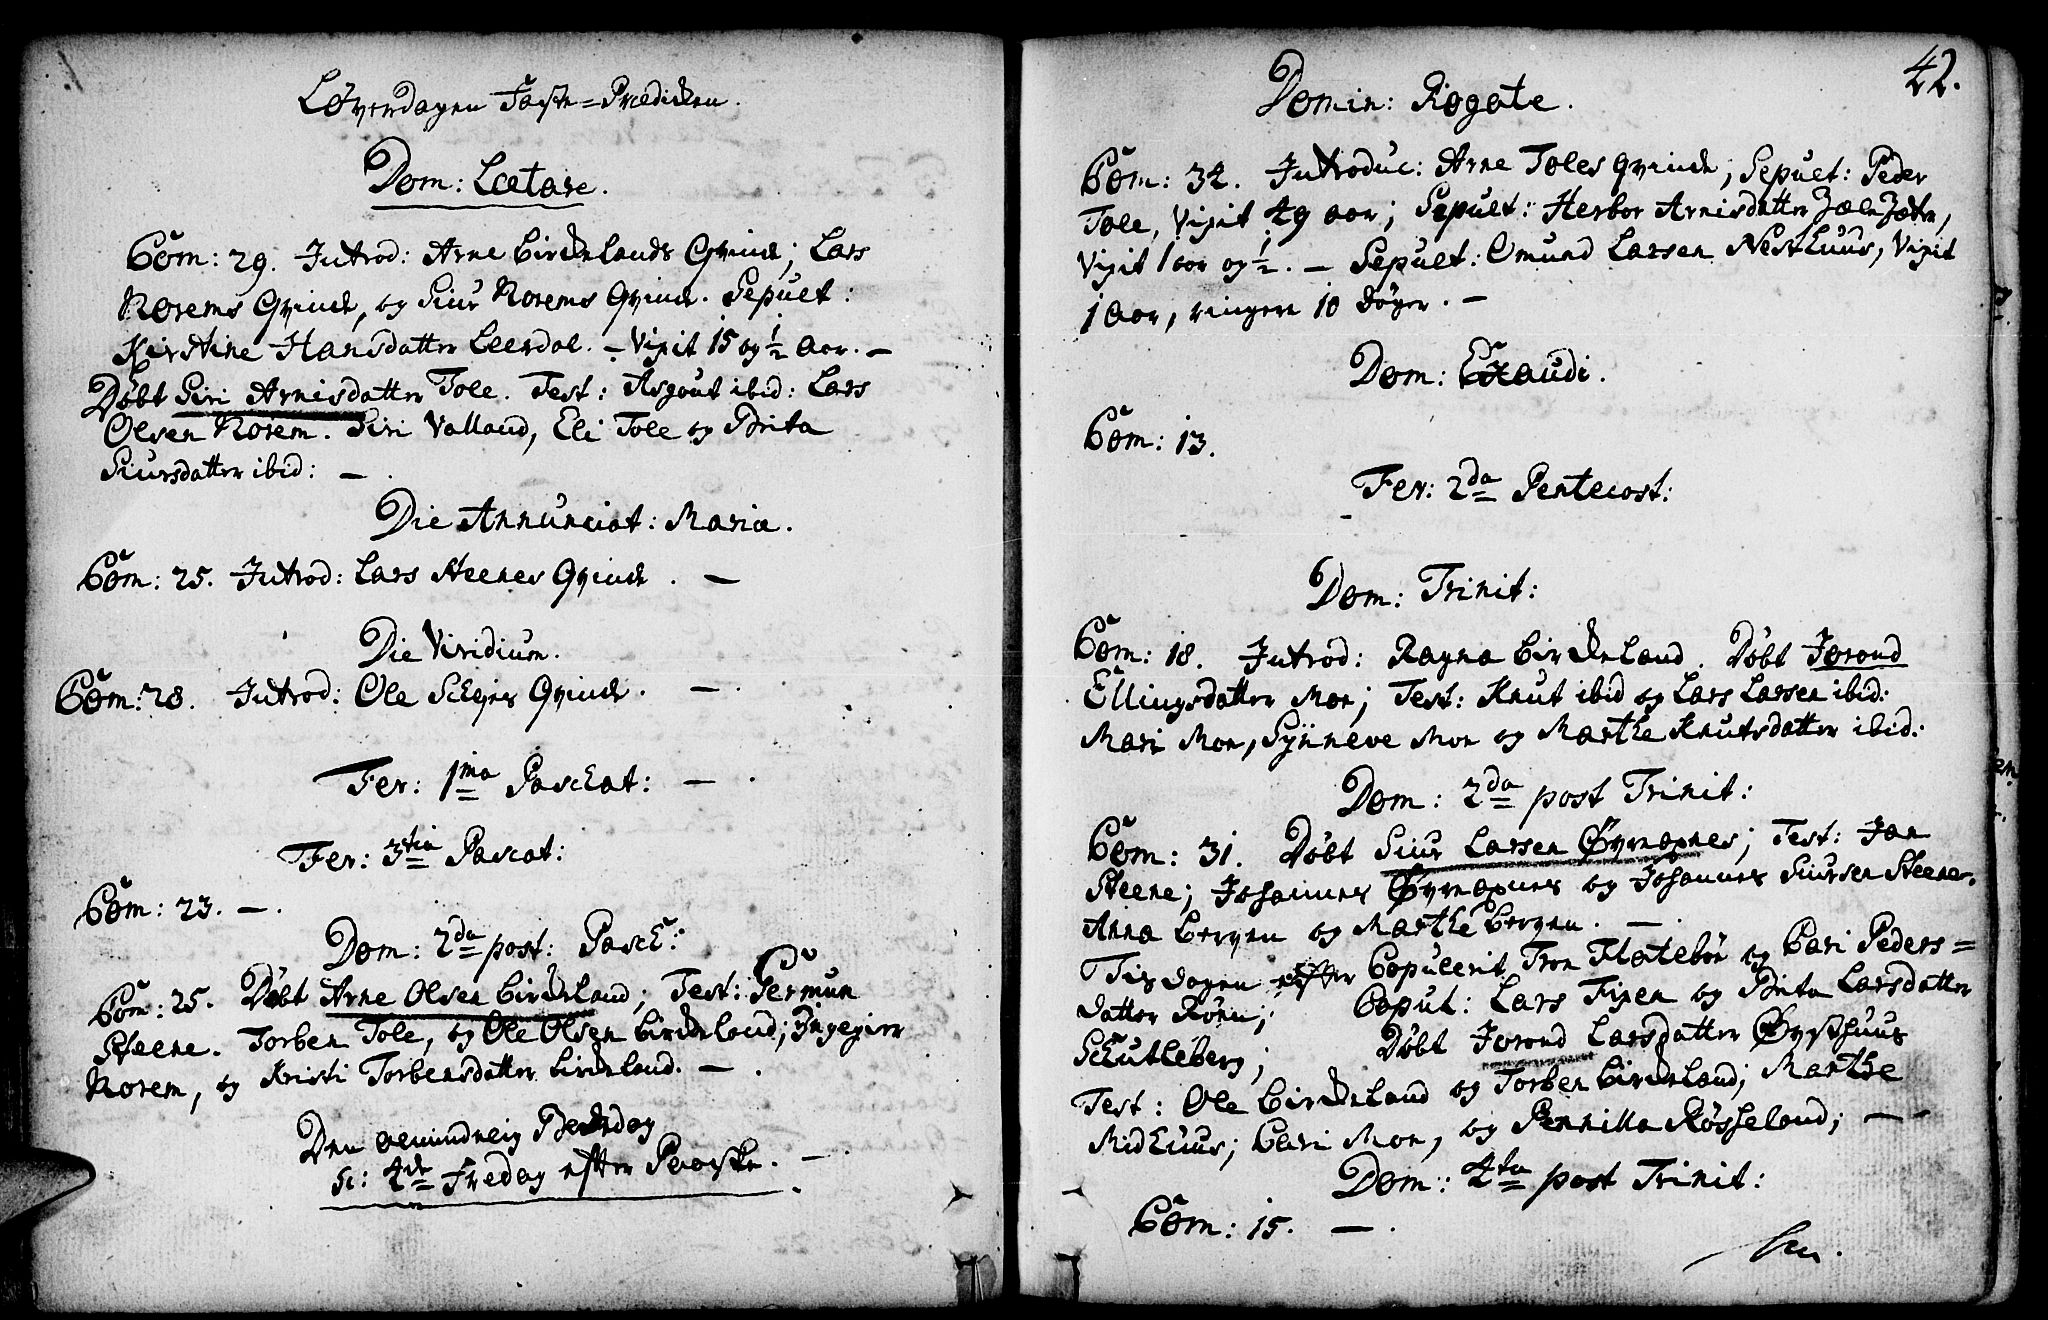 Løverdagen Faste=Prædicken.
Dom: Lætare.
Com: 29. Introd: Arne Birckelands Qvinde; Lars
Norems Qvinde, og Siur Norems Qvinde. Sepult:
Kirstine Hansdatter Leerdal. - Vixit 15 og ½ Aar. -
Døbt Siri Arnisdatter Tole. Test: Asgout ibid: Lars
Olsen Norem. Siri Valland, Eli Tole og Brita
Siursdatter ibid: - .
Die Annunciat: Maria.
Com: 25. Introd: Lars Steenes Qvinde. -
Die Viridium.
Com: 28. Introd: Ole Qvinde. - .
Fer: 1ma Paschat: - .
Fer: 3tia Pascat:
Com: 23. - .
Dom: 2da post: Pasch:
Com: 25. Døbt Arne Olsen Birckeland; Test: Germun
Steene. Torben Tole, og Ole Olsen Birckeland; Ingegier
Norem, og Kristi Torbensdatter Birckeland. - .
Den almindelig Bededag
sc: 4de Fredag efter Paaske. - .
42.
Domin: Rogate.
Com: 32. Introduc: Arne Toles Qvinde; Sepult: Peder
Tole, Vixit 49 aar; Sepult: Herbor Arnisdatter
Vixit 1 aar og ½. - Sepult: Omund Larsen Nesthuus, Vixit
1 Aar, ringere 10 Døger. -
Dom: Exaudi.
Com: 13.
Fer: 2da Pentecost:
Dom: Trinit:
Com: 18. Introd: Ragna Birckeland. Døbt Jorond
Ellingsdatter Moe; Test: Knut ibid og Lars Larsen ibid:
Mari Moe, Synneve Moe og Marthe Knutsdatter ibid:
Dom: 2da post Trinit:
Com: 31. Døbt Siur Larsen Øyrenæs; Test: Jan
Steene; Johannes og Johannes Siursen Steene.
Anna Bergen og Marthe Bergen. -
Tisdagen efter Copulerit Tron Flatebøe og Cari Peders=
datter Røen; Copul: Lars Fixen og Brita Larsdatter
Schutleberg; Døbt Jorond Larsdatter Øysthuus
Test: Ole Birckeland og Torben Birckeland; Marthe
Midhuus; Cari Moe, og Pernilla Røsseland; -
Dom: 4ta post Trinit:
Com: 15. - .